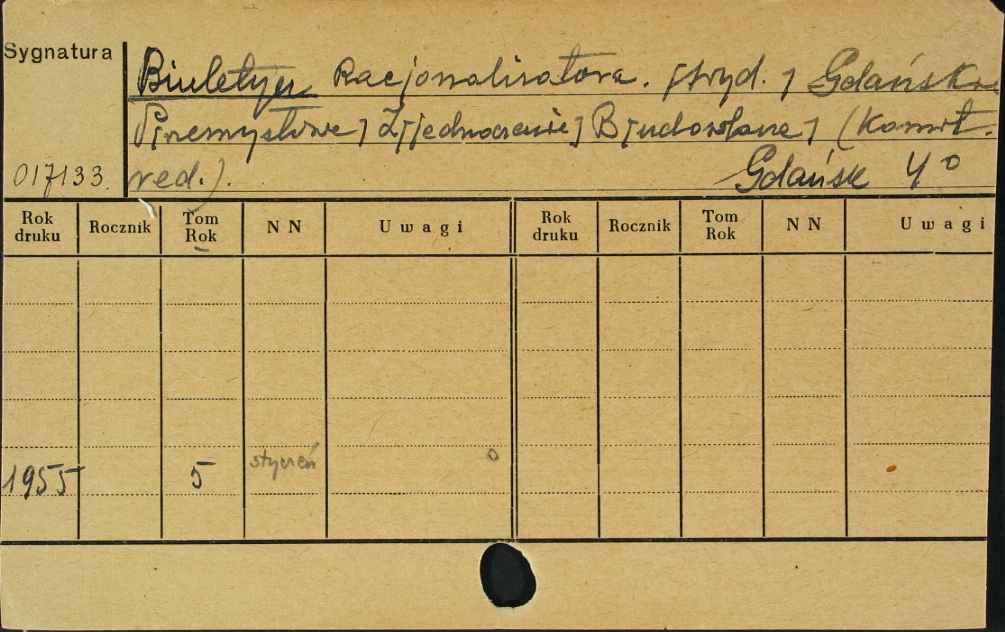 Sygnatura
Biuletyn Racjonalizatora. [Wyd.] Gdańskie
Przemysłowe] Z[jednoczenie] B[udowlane] (Komit.
017133. red.). Gdańsk 4°
Rok druku Rocznik Tom Rok N N Uwagi Rok druku Rocznik Tom Rok N N Uwagi
1955 5 styczeń